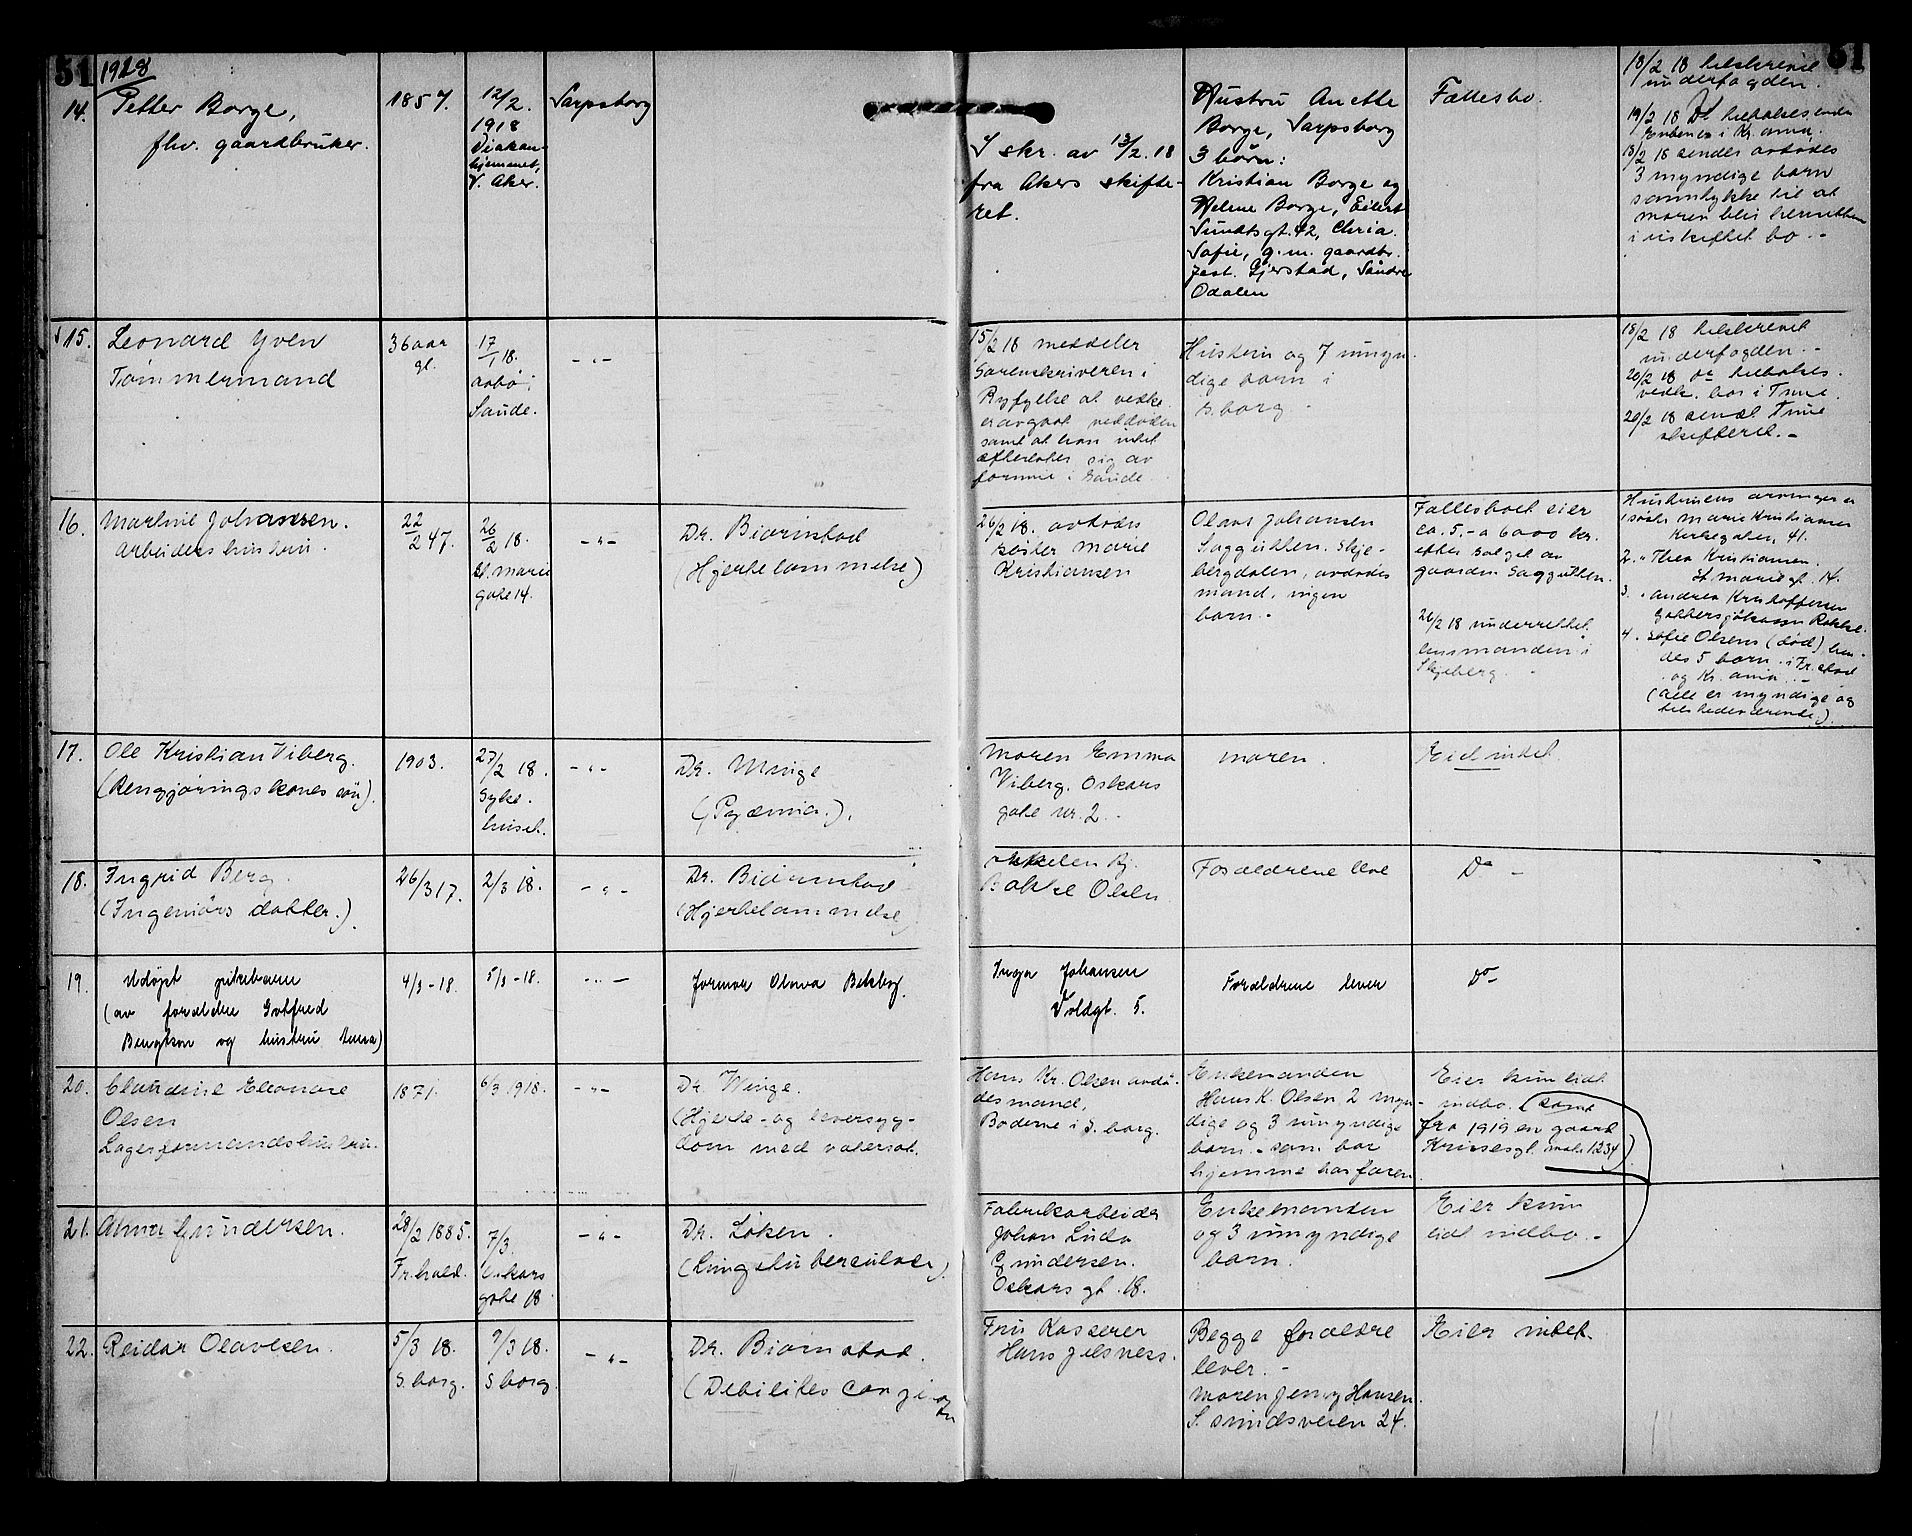 51
1918
14. Petter Borge,
fhv. gaardbruker.
1857.
12/2.
1918
Diakon-
hjemmet,
V. Aker.
Sarpsborg
I skr. av 13/2. 18
fra Akers skifte-
ret.
Hustru Anette
Borge, Sarpsborg
3 børn:
Kristian Borge og
Helene Borge, Eilert
Sundtsgt. 42, Chria.
Sofie, g. m. gaardbr.
Gjerstad, Søndre
Odalen
Fællesbo.
51
18/2 18 tilskrevet
underfogden.
19/2 18
Enken i Kr.ania.
18/2 18 sender avdødes
3 myndige barn
samtykke til at
moren blir
i uskiftet bo. -
15. Leonard Yven
Tømmermand
36 aar
gl.
17
/1 18.
Saude.
- " -
15/2 18 meddeler
Sorenskriveren i
Ryfylke at
samt at han intet
efterlater sig av
formue i Saude.
Hustru og 7 umyn-
dige barn i
S.borg.
18/2 18 tilskrevet
underfogden. -
20/2 18
bor i Tune.
20/2 18 sendt Tune
skifteret. -
16. Martine Johansen.
Arbeiders hustru.
22
/2 47.
26
/2 18.
St. Marie
gate 14.
- " -
Dr. Biørnstad
(Hjertelammelse)
26/2 18. avdødes
søster Marie
Kristiansen
Olaus Johansen
Saggutten. Skje-
bergdalen, avdødes
mand, ingen
barn. -
Fællesboet eier
ca. 5,- a 6000 kr.
efter salget av
gaarden Saggutten.
26/2 18 underrettet
lensmanden i
Skjeberg.
Hustruens arvinger er
1 søster Marie Kristiansen
Kirkegaten, 41.
2. " Thea Kristiansen.
St. Marie gt. 14.
3. " Andrea Kristoffersen
Rakke.
4. Sofie Olsen (død) hen-
des 5 barn i Fr.stad
og Kr.ania. -
(alle er myndige og
tilstedeværende).
17. Ole Kristian Viberg.
(Rengjøringskones søn).
1903.
27/2 18.
Syke-
huset.
- " -
Dr. Minge
(Pyæmia.).
Moren Emma
Viberg. Oskars
gate nr. 2. -
moren.
Eier intet.
18. Ingrid Berg.
(Ingeniørs datter.)
26/3 17.
2/3 18.
- " -
Dr. Biørnstad
(Hjertelammelse)
Onkelen Bj.
Bakke Olsen
Forældrene leve
Do -
19. Udøpt pikebarn
(av forældre Gotfred
Bengtson og hustru Anna)
4/3 - 18.
5/3 - 18.
- " -
formor Olava
Inga Johansen
Voldgt. 5.
Forældrene lever
Do -
20. Claudine Eleonore
Olsen
Lagerformandshustru.
1871.
6/3 1918.
- " -
Dr. Winge.
(Hjerte - og leversyg-
dom med vatersot.
Hans Kr. Olsen avdø-
des mand,
Boderne i S.borg.
Enkemanden
Hans K. Olsen 2 myn-
dige og 3 umyndige
barn - som bor
hjemme hos faren
Eier kun lidt
indbo. (samt
fra 1919 en gaard
matr. 1234)
21. Anna Gundersen.
28/2 1885.
Fr.hald.
7/3.
Oskars
gate 18
- " -
Dr. Løken.
(Lungetuberculose).
Fabrikarbeider
Johan Ludv
Gundersen.
Oskars gt. 18.
Enkemanden
og 3 umyndige
barn.
Eier kun
lidt indbo. -
22. Reidar Olavesen.
5/3 18.
S.borg.
9/3 18.
S borg.
- " -
Dr. Biørnstad.
(Debilites
Fru Kasserer
Hans Jelsness.
Begge forældre
lever. -
Moren Jenny Hansen.
S.smidsveien 24.
Eier intet.